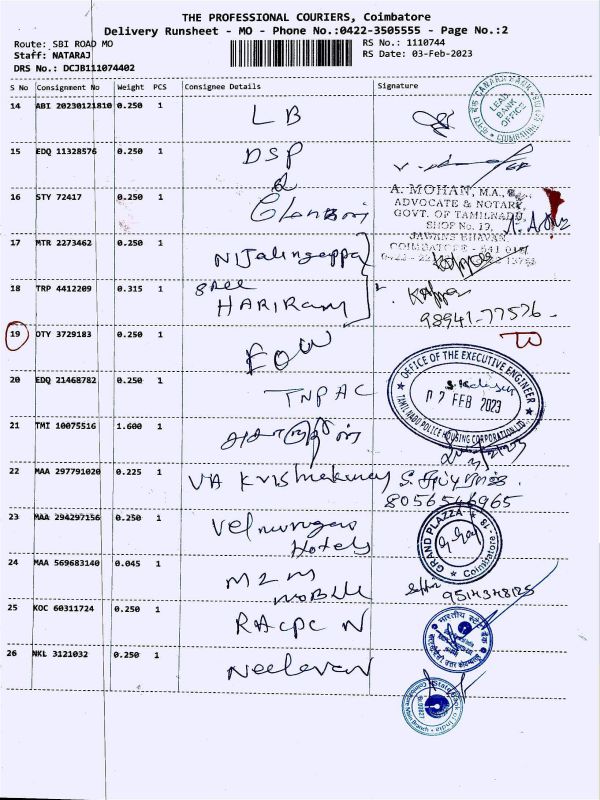 THE PROFESSIONAL COURIERS, Coimbatore
Delivery Runsheet - MO - Phone No.:0422-3505555 - Page No.:2
Route: SBI ROAD MO
RS No.: 1110744
Staff: NATARAJ
RS Date: 03-Feb-2023
DRS No.: DCJB111074402
S No Consignment No Weight PCS Consignee Details Signature
14 ABI 20230121810 0.250 1 LB
CANARA BANK
LEAD BANK OFFICE
COIMBATORE
15 EDQ 11328576 0.250 1 DSP
16 STY 72417 0.250 1
A. MOHAN, M.A.,
ADVOCATE & NOTARY
GOVT. OF TAMILNADU
SHOP No. 19,
JAWANS BHAVAN,
COIMBATORE - 641 018
17 MTR 2273462 0.250 1 Nijalingappa
18 TRP 4412209 0.315 1 Sree
HARIRAM
98941-77576
19 DTY 3729183 0.250 1 EOW
20 EDQ 21468782 0.250 1 TNPAC
OFFICE OF THE EXECUTIVE ENGINEER
TAMIL NADU POLICE HOUSING CORPORATION LTD
07 FEB 2023
21 TMI 10075516 1.600 1
22 MAA 297791020 0.225 1 VA Krishnakumar
8056546965
23 MAA 294297156 0.250 1 Velmurugan
Hotels
GRAND PLAZZA
Coimbatore-18
24 MAA 569683140 0.045 1 M2M
MOBILE
25 KOC 60311724 0.250 1 RACPC N
भारतीय स्टेट बैंक
26 NKL 3121032 0.250 1 Neelavan
State Bank of India